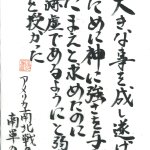 大きな事を成し遂げ
ために神に強さを
たまえと求めたのに
謙虚であるようにと弱
を授かった
アメリカ南北戦
南軍の